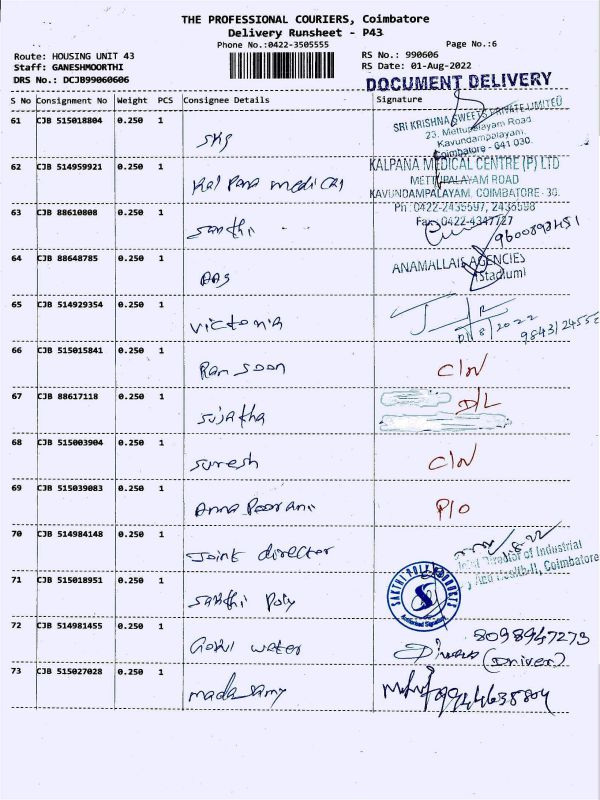 THE PROFESSIONAL COURIERS, Coimbatore
Delivery Runsheet - P43
Phone No.:0422-3505555
Page No.:6
Route: HOUSING UNIT 43
RS No.: 990606
Staff: GANESHMOORTHI
RS Date: 01-Aug-2022
DRS No.: DCJB99060606
DOCUMENT DELIVERY
S No Consignment No Weight PCS Consignee Details Signature
61 CJB 515018804 0.250 1 SKS
SRI KRISHNA SWEETS PRIVATE LIMITED
23, Mettupalayam Road
Kavundampalayam,
Coimbatore - 641 030.
62 CJB 514959921 0.250 1 Kalpana medical
KALPANA MEDICAL CENTRE (P) LTD
METTUPALAYAM ROAD
KAVUNDAMPALAYAM, COIMBATORE - 30.
Ph : 0422-2435597, 2436598
Fax: 0422-4347727
63 CJB 88610808 0.250 1 Santhi
64 CJB 88648785 0.250 1 AAS
ANAMALLAIS AGENCIES
(Stadium)
65 CJB 514929354 0.250 1 Victoria
66 CJB 515015841 0.250 1 Ram soon C/N
67 CJB 88617118 0.250 1 Sujatha D/L
68 CJB 515003904 0.250 1 Suresh C/N
69 CJB 515039083 0.250 1 Anna Poorani P/O
70 CJB 514984148 0.250 1 Joint director
Director of Industrial
And Health-II, Coimbatore
71 CJB 515018951 0.250 1 Sakthi Poly
SAKTHI POLY PRODUCTS
Authorised Signatory
72 CJB 514981455 0.250 1 Gowri water
8098947273
(Driver)
73 CJB 515027028 0.250 1 madasamy
9944635804